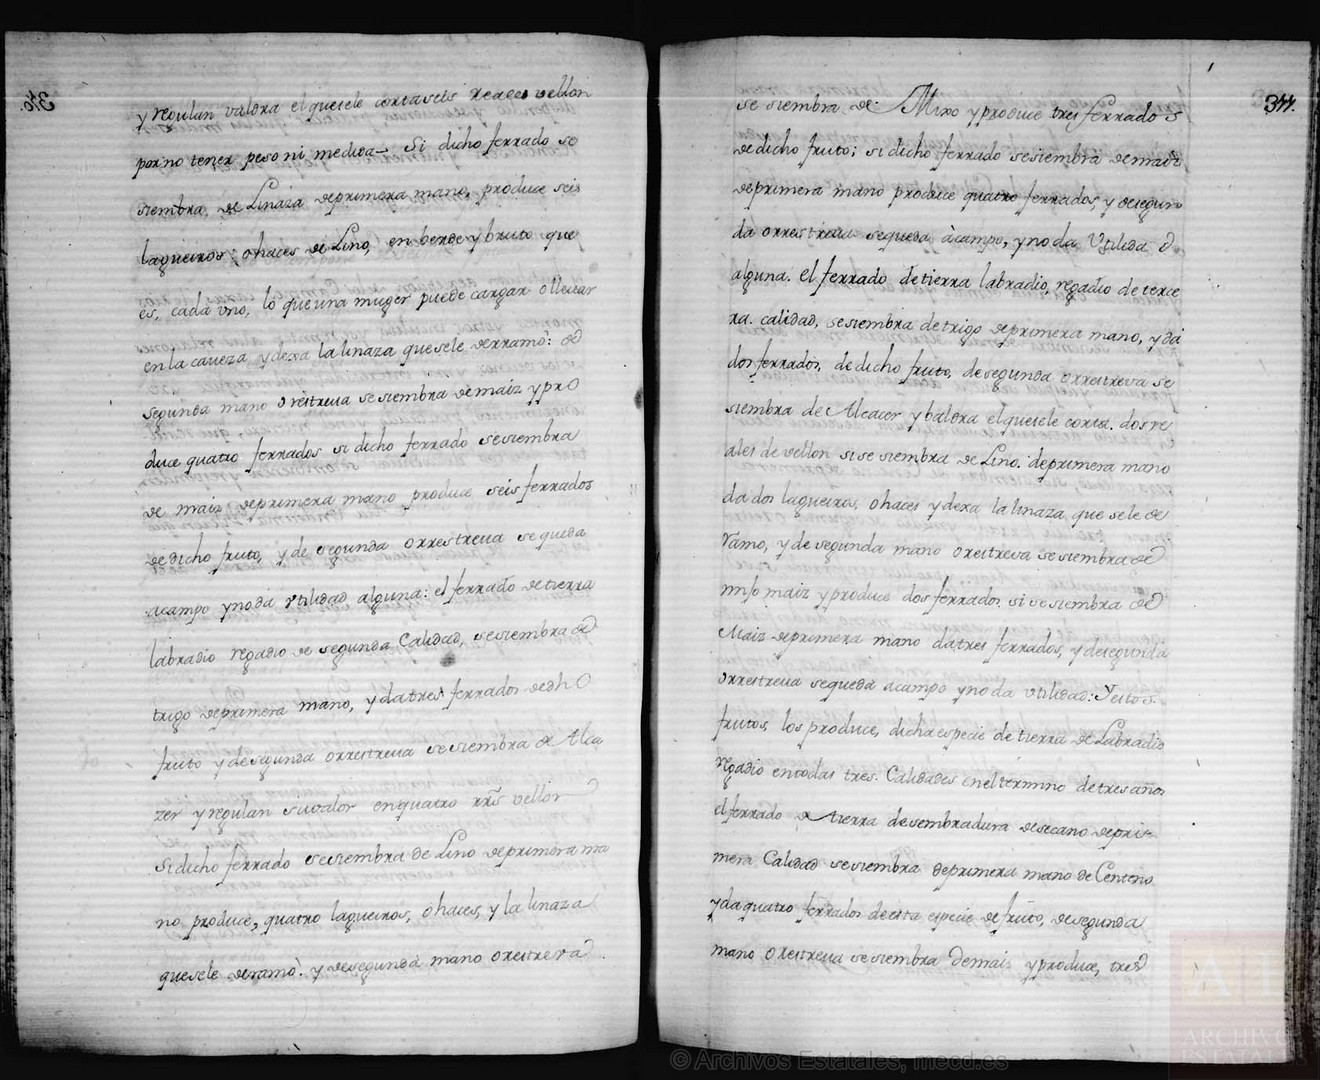 y regulan valdra el quesele corta seis Reales vellon
por no tener peso ni medida Si dicho ferrado se
siembra de Linaza deprimera mano, produce seis
lagueiros; ohaces de Lino, en berde y bruto que
es, cada vno, lo que una muger puede cargar o llevar
en la caveza y dexa la linaza que sele derramò: de
segunda mano o restreua se siembra de maiz y pro
duce quatro ferrados si dicho ferrado se siembra
de maiz deprimera mano produce seis ferrados
de dicho fruto, y de segunda orrestreua se queda
acampo y no dá vtilidad alguna: el ferrado de tierra
labradio regadio de segunda Calidad, se siembra de
trigo deprimera mano, y da tres ferrados de dho
fruto y de segunda orrestreua se siembra de Alca
zer y regulan su valor en quatro rrs vellon
Si dicho ferrado se siembra de Lino deprimera ma
no produce, quatro lagueiros, ohaces, y la linaza
que sele derramò. y de segunda mano o restreva
340.
344.
se siembra de Mixo y produce tres ferrados
de dicho fruto; si dicho ferrado se siembra de maiz
deprimera mano produce quatro ferrados y de segun
da orrestreua sequeda à campo, y no da Vtilidad
alguna. el ferrado de tierra labradio, regadio de terce
ra. calidad, se siembra de trigo deprimera mano, y da
dos ferrados, de dicho fruto, de segunda orrestreva se
siembra de Alcacer y baldra el que sele corta. dos re
ales de vellon si se siembra de Lino. deprimera mano
da dos lagueiros, ohaces y dexa la linaza que sele de
ramo, y de segunda mano orestreva se siembra de
maiz y produce dos ferrados. si se siembra de
Maiz deprimera mano da tres ferrados, y de segunda
orrestreua sequeda acampo y no da vtilidad: Y estos.
frutos, los produce, dicha especie de tierra de Labradio
regadio en todas tres. Calidades en el termino de tres años
el ferrado de tierra de sembradura de secano de pri-
mera Calidad se siembra deprimera mano de Centeno
y da quatro ferrados de esta especie de fruto, de segunda
mano o restreua se siembra de mais y produce, tres
© Archivos Estatales, mecd.es
AE
ARCHIVOS
ESTATALES